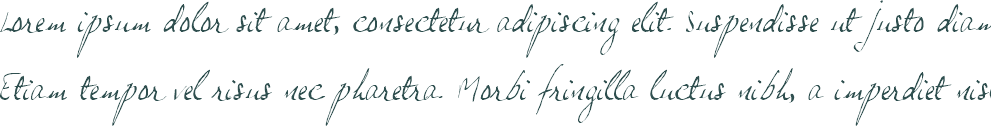 Lorem ipsum dolor sit amet, consectetur adipiscing elit. Suspendisse ut justo diam
Etiam tempor vel risus nec pharetra. Morbi fringilla luctus nibh, a imperdiet